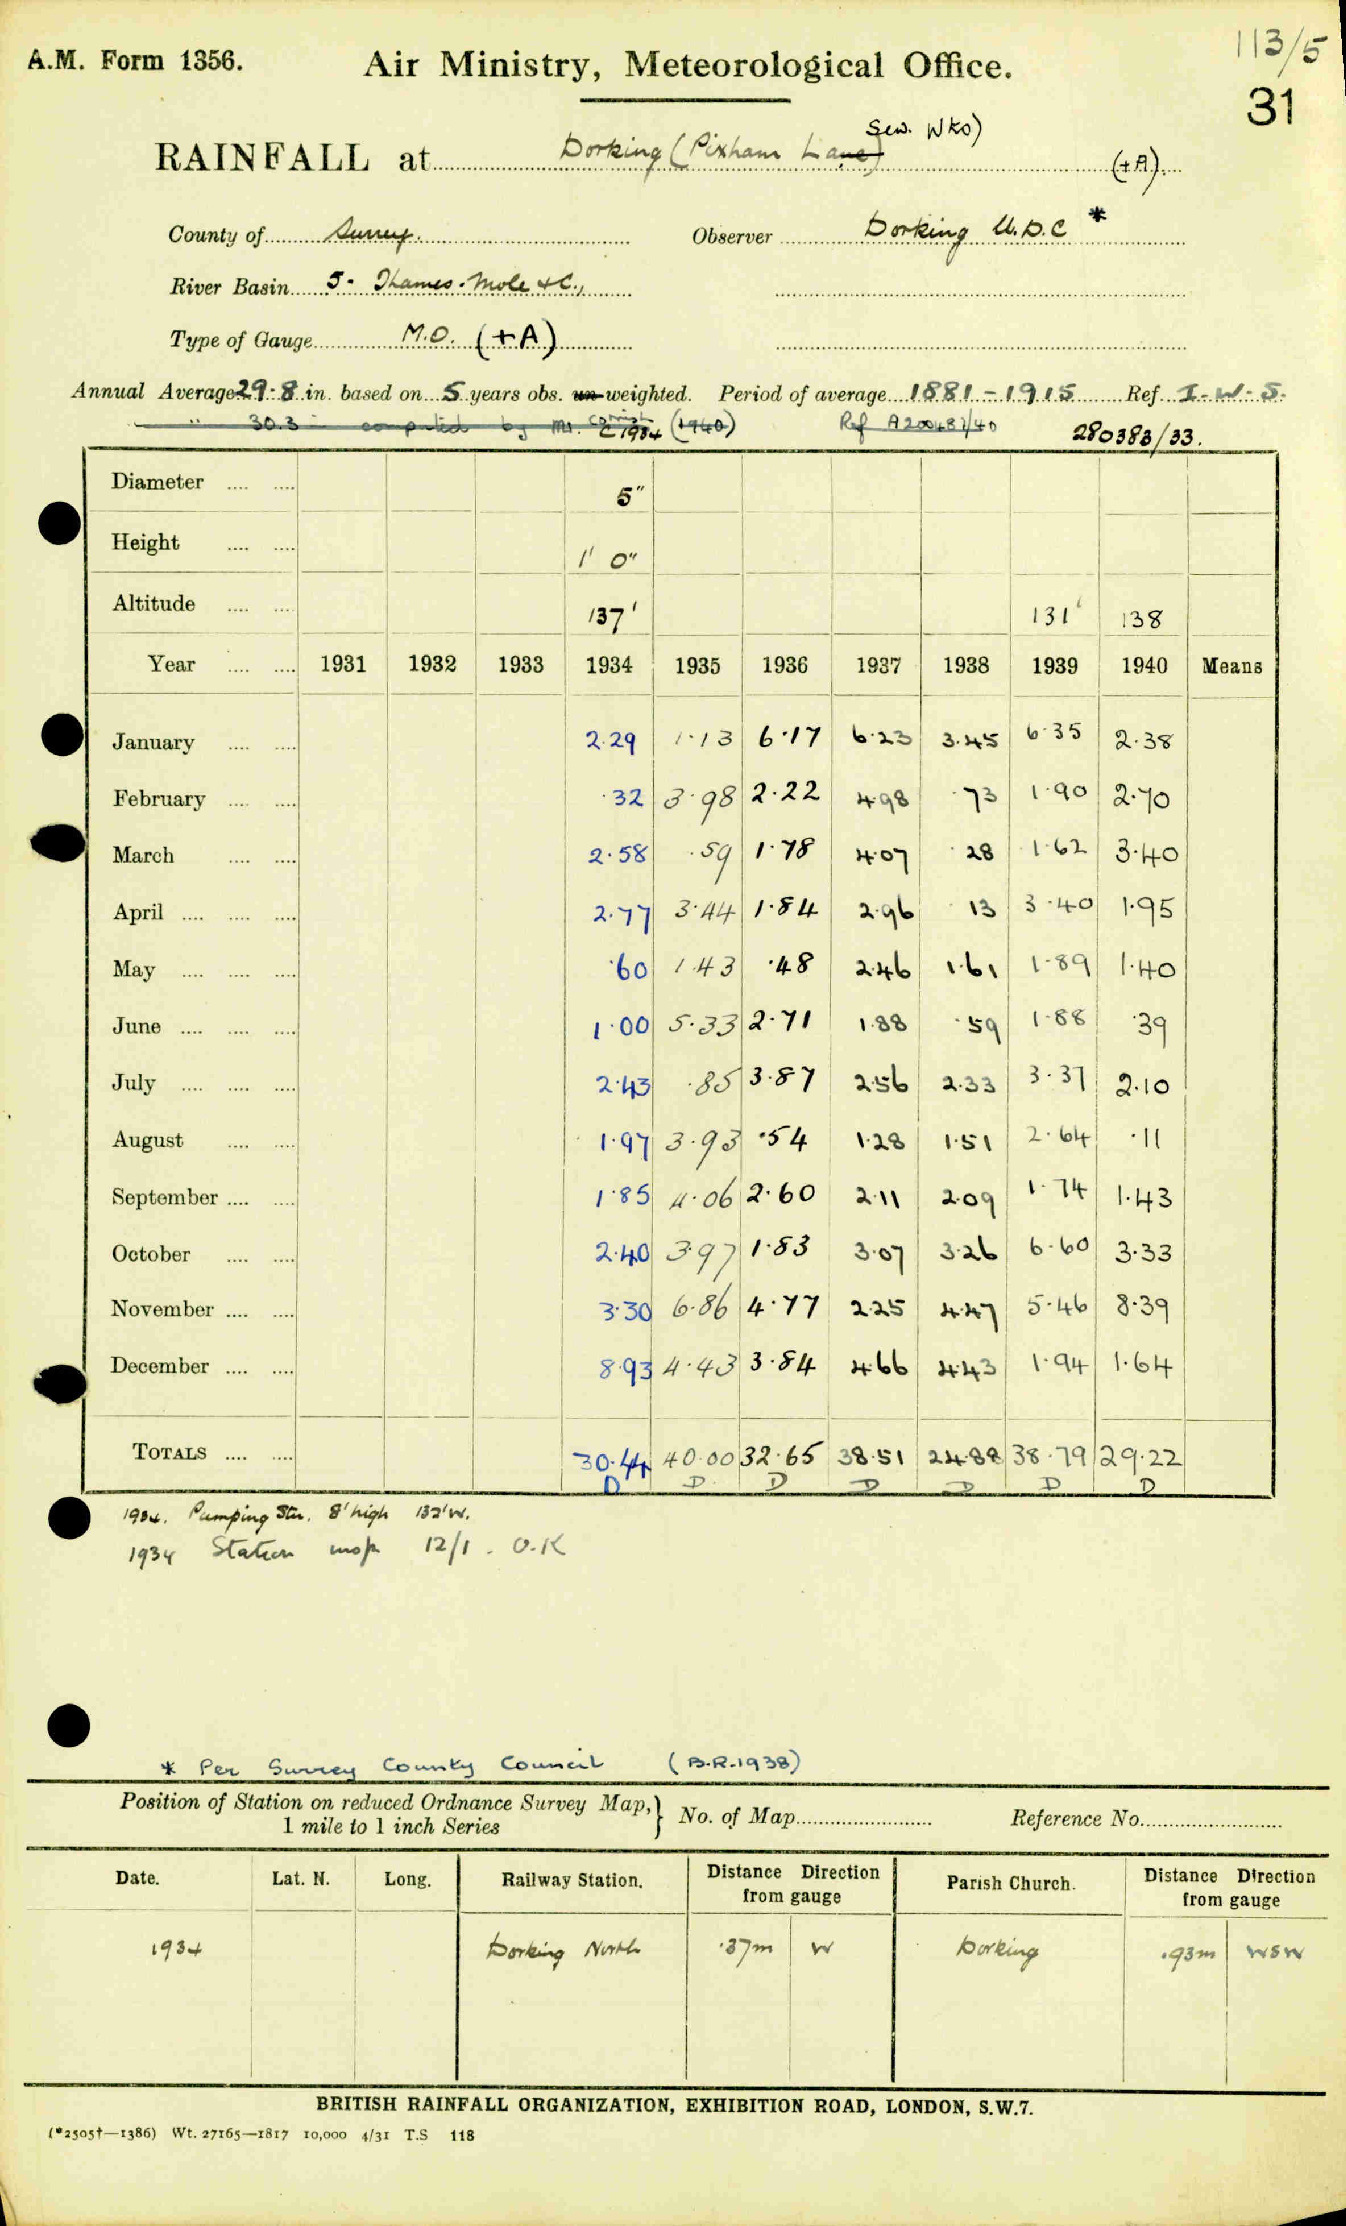 113/5
A.M. Form 1356.
Air Ministry, Meteorological Office.
31
Sew. Wks)
RAINFALL at Dorking (Pixham Lane) (+A).
County of Surrey. Observer Dorking U.D.C *
River Basin 5- Thames-Mole &C.,
Type of Gauge M.O. (+A)
Annual Average 29.8 in. based on 5 years obs. un-weighted. Period of average 1881-1915 Ref. I.W.S.
" 30.3 computed by Mr. C 1934 (1940) Ref A200487/40 280383/33.
Diameter .... .... 5"
Height .... .... 1' 0"
Altitude .... .... 137' 131' 138
Year .... .... 1931 1932 1933 1934 1935 1936 1937 1938 1939 1940 Means
January .... .... 2.29 1.13 6.17 6.23 3.45 6.35 2.38
February .... .... .32 3.98 2.22 4.98 .73 1.90 2.70
March .... .... 2.58 .59 1.78 4.07 .28 1.62 3.40
April .... .... .... 2.77 3.44 1.84 2.96 .13 3.40 1.95
May .... .... .... .60 1.43 .48 2.46 1.61 1.89 1.40
June .... .... .... 1.00 5.33 2.71 1.88 .59 1.88 .39
July .... .... .... 2.43 .85 3.87 2.56 2.33 3.37 2.10
August .... .... 1.97 3.93 .54 1.28 1.51 2.64 .11
September .... .... 1.85 4.06 2.60 2.11 2.09 1.74 1.43
October .... .... 2.40 3.97 1.83 3.07 3.26 6.60 3.33
November .... .... 3.30 6.86 4.77 2.25 4.47 5.46 8.39
December .... .... 8.93 4.43 3.84 4.66 4.43 1.94 1.64
TOTALS .... .... 30.44 40.00 32.65 38.51 24.88 38.79 29.22
D D D D D D D
1934. Pumping Stn. 8' high 132' W.
1934 Station insp 12/1. O.K
* Per Surrey County Council (B.R.1938)
Position of Station on reduced Ordnance Survey Map,} No. of Map Reference No.
1 mile to 1 inch Series
Date. Lat. N. Long. Railway Station. Distance Direction from gauge Parish Church. Distance Direction from gauge
1934 Dorking North .37m W Dorking .93m WSW
BRITISH RAINFALL ORGANIZATION, EXHIBITION ROAD, LONDON, S.W.7.
(*2505†—1386) Wt. 27165—1817 10,000 4/31 T.S 118